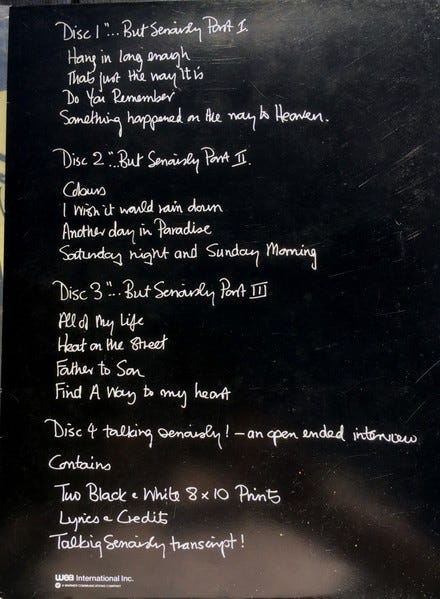 Disc 1 "... But Seriously Part I.
Hang in long enough
Thats just the way It is
Do You Remember
Something happened on the way to Heaven.
Disc 2 "... But Seriously Part II.
Colours
I Wish it would rain down
Another day in Paradise
Saturday night and Sunday Morning
Disc 3 "... But Seriously Part III
All of My Life
Heat on the Street
Father to Son
Find A Way to my heart
Disc 4 talking seriously! - an open ended interview
Contains
Two Black & White 8 x 10 Prints
Lyrics & Credits
Talking Seriously transcript!
wea International Inc.
A WARNER COMMUNICATIONS COMPANY